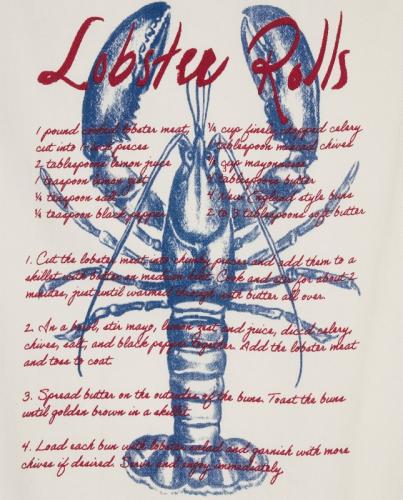 Lobster Rolls
1 pound cooked lobster meat,
cut into 1 inch pieces
2 tablespoons lemon juice
1 teaspoon lemon zest
¼ teaspoon salt
¼ teaspoon black pepper
¼ cup finely chopped celery
1 tablespoon minced chives
⅓ cup mayonnaise
4 tablespoons butter
4 New England style buns
2 to 3 tablespoons soft butter
1. Cut the lobster meat into chunky pieces and add them to a
skillet with butter on medium heat. Cook and stir for about 2
minutes, just until warmed through with butter all over.
2. In a bowl, stir mayo, lemon zest and juice, diced celery,
chives, salt, and black pepper together. Add the lobster meat
and toss to coat.
3. Spread butter on the outsides of the buns. Toast the buns
until golden brown in a skillet.
4. Load each bun with lobster salad and garnish with more
chives if desired. Serve and enjoy immediately.